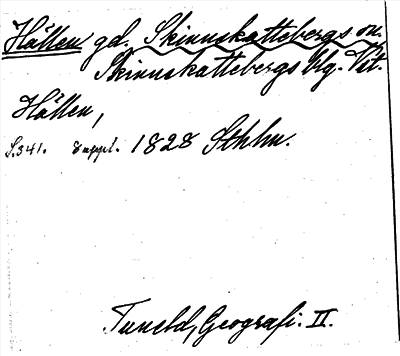 Hällen gd. Skinnskattebergs sn.
Skinnskattebergs blg. Vät.
Hällen,
S. 341. suppl. 1828 Sthlm.
Tuneld, Geografi. II.